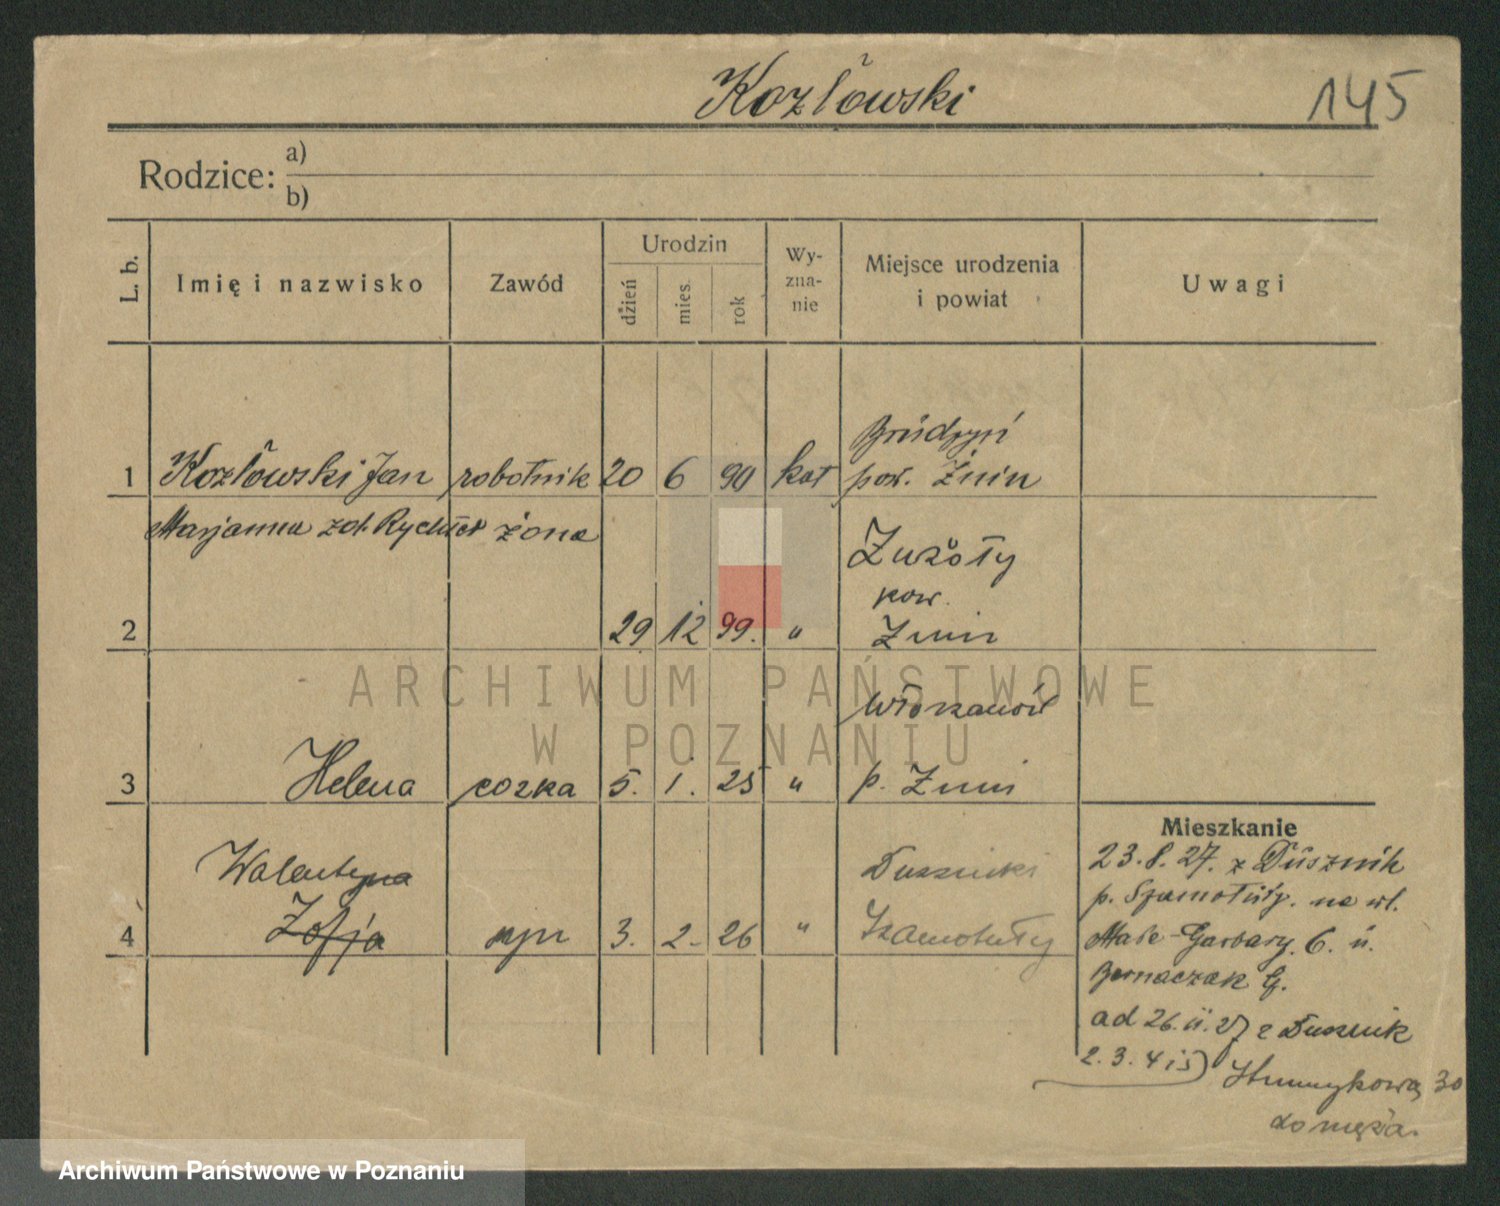 Kozłowski
145
Rodzice: a)
b)
L. b.
Imię i nazwisko
Zawód
Urodzin
dzień
mies.
rok
Wy-
zna-
nie
Miejsce urodzenia
i powiat
Uwagi
1 Kozłowski Jan robotnik 20 6 90 kat
pow. Żnin
Marjanna żona
Zużoły
pow.
2 29 12 99. "
Żnin
3 Helena corka 5. 1. 25 "
p. Żnin
Walentyna
Zofja
4 3. 2. 26 "
Duszniki
Szamotuły
Mieszkanie
23.8.27. z Dusznik
p. Szamotuły. na wł.
Małe-Garbary. 6. u.
Bernaczak G.
ad 26.11.27 z Dusznik
2.3.4 i 5)
30
do męża.
ARCHIWUM PAŃSTWOWE
W POZNANIU
Archiwum Państwowe w Poznaniu